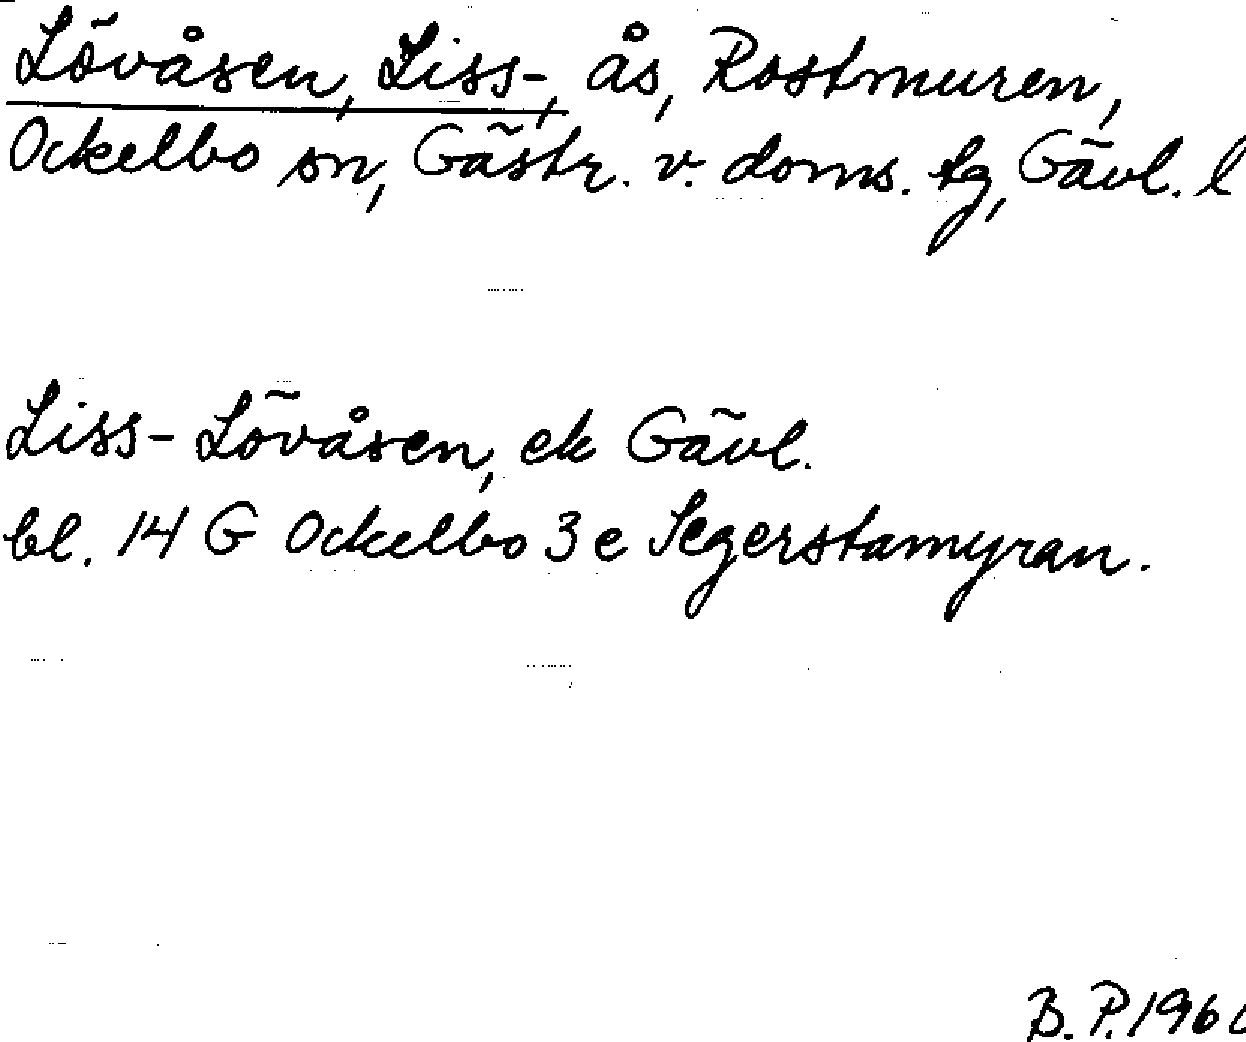 Lövåsen, Liss-, ås, Rostmuren,
Ockelbo sn, Gästr. v. doms. tg, Gävl. l
Liss-Lövåsen, ek Gävl.
bl. 14 G Ockelbo 3 e Segerstamyran.
B. P.